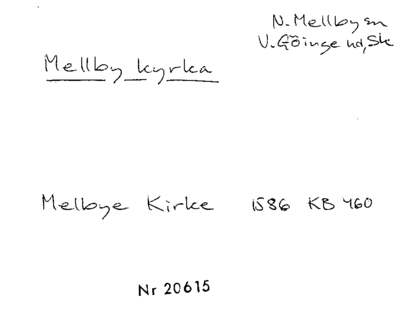 N. Mellby sn
V. Göinge hd, Sk
Mellby kyrka
Melbye Kirke 1586 KB 460
Nr 20615